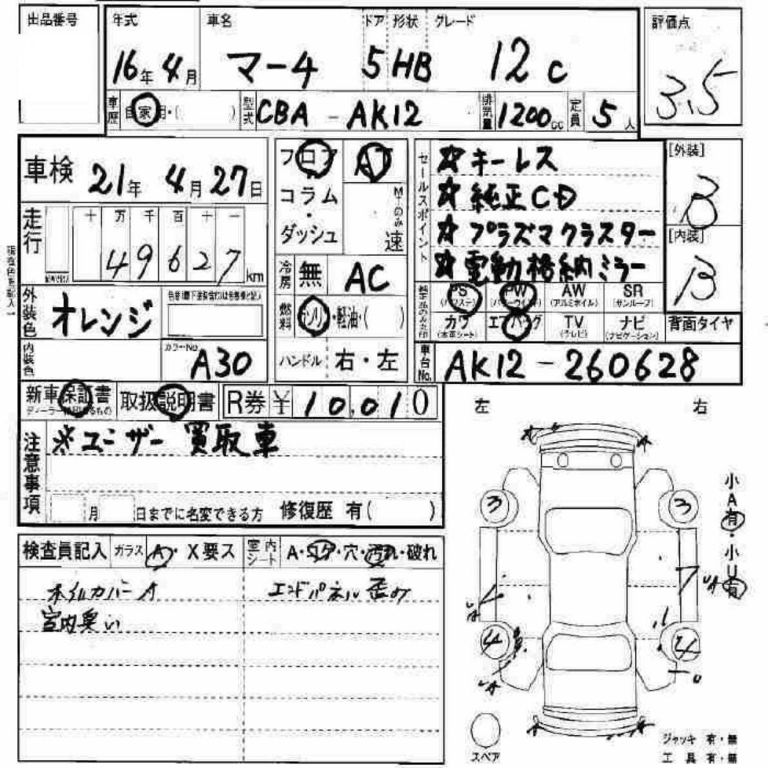 出品番号
年式 車名 ドア 形状 グレード 評価点
16年 4月 マーチ 5 HB 12c 3.5
車歴 自家用・( ) 型式 CBA-AK12 排気量 1200cc 定員 5人
車検 21年 4月 27日
フロア AT
コラム・ダッシュ MTのみ 速
セールスポイント
☆ キーレス
☆ 純正CD
☆ プラズマクラスター
☆ 電動格納ミラー
[外装] B
[内装] B
走行 十万千百十一
49627km
冷房 無 AC
燃料 ガソリン・軽油・( )
ハンドル 右・左
PS (パワステ) PW (パワーウィンド) AW (アルミホイル) SR (サンルーフ)
カワ (本革シート) エアバッグ TV (テレビ) ナビ (ナビゲーション) 背面タイヤ
外装色 オレンジ
内装色 カラーNo. A30
車台No. AK12-260628
新車保証書 取扱説明書 R券 ¥10,010
注意事項
※ユーザー買取車
月 日までに名変できる方 修復歴 有( )
左 右
3 3
小A有・小U有
検査員記入 ガラス A・X要ス 室内シート A・コゲ・穴・汚れ・破れ
室内臭い
エンドパネル歪み
4 4
スペア
ジャッキ 有・無
工具 有・無